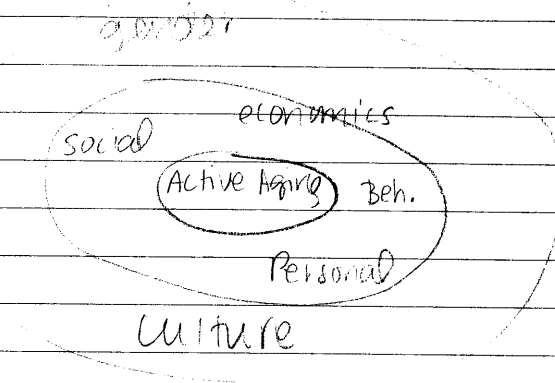 gender
economics
social
Active Aging
Beh.
Personal
Culture